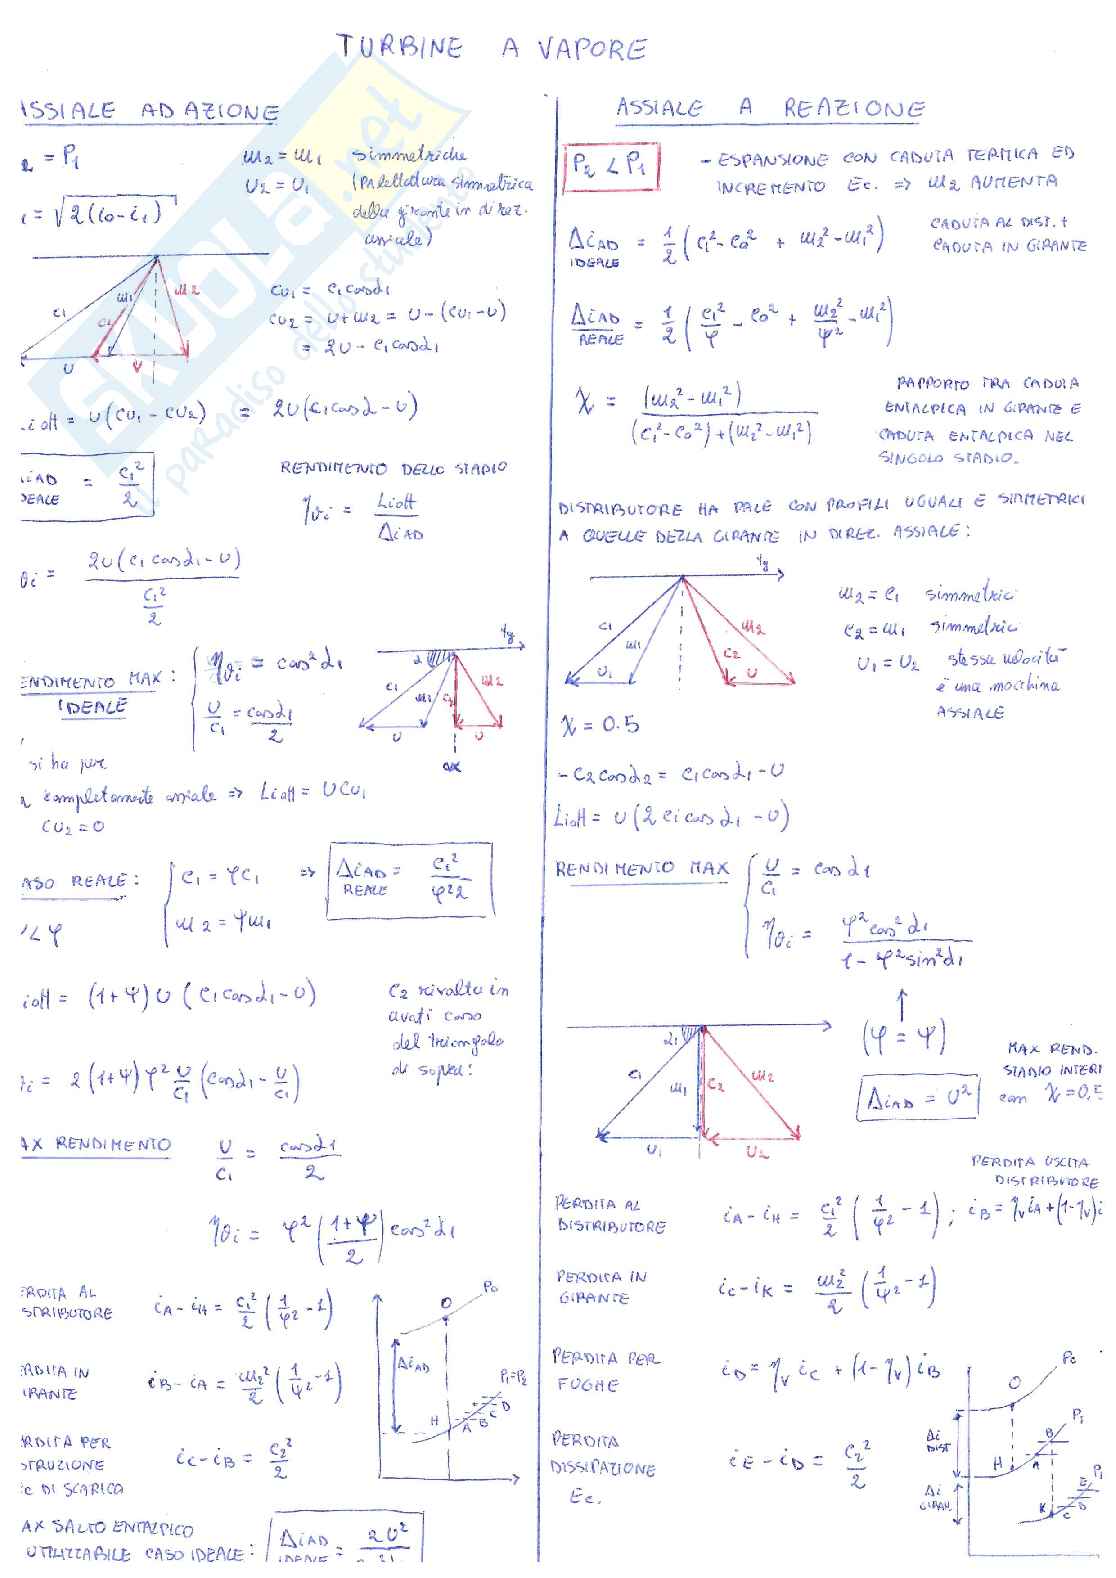 TURBINE A VAPORE
ISSIALE AD AZIONE
2 = P1
w2 = w1 simmetriche
U2 = U1 (Palettatura simmetrica
della girante in direz.
assiale)
1 = √2(i0-i1)
c1 w1 c2 w2
U U
cu1 = c1cosα1
cu2 = U+w2 = U-(cu1-U)
= 2U-c1cosα1
LioH = U(cu1-cu2) = 2U(c1cosα-U)
ΔiAD = c1²/2
IDEALE
RENDIMENTO DELLO STADIO
ηθi = LioH/ΔiAD
θi = 2U(c1cosα1-U)/(c1²/2)
ENDIMENTO MAX:
IDEALE
ηθi = cos²α1
U/c1 = cosα1/2
tg
α c1 w1 c2 w2
U U
ax
si ha per
2 completamente assiale => LioH = UCU1
CU2=0
ASO REALE: c1 = φc1 => ΔiAD = c1²/φ²2
REALE
w2 = ψw1
<φ
ioH = (1+ψ)U(c1cosα1-U)
C2 rivolta in
avati caso
del triangolo
di sopra:
i = 2(1+ψ)φ² U/c1 (cosα1 - U/c1)
AX RENDIMENTO U/c1 = cosα1/2
ηθi = φ²((1+ψ)/2)cos²α1
ERDITA AL
STRIBUTORE
iA-iH = c1²/2 (1/φ²-1)
ERDITA IN
IRANTE
iB-iA = w2²/2 (1/ψ²-1)
ERDITA PER
STRUZIONE
Ec DI SCARICA
iC-iB = c2²/2
O P0
ΔiAD
P1=P2
H A B C D
AX SALTO ENTALPICO
UTILIZZABILE CASO IDEALE: ΔiAD = 2U²
IDEALE
ASSIALE A REAZIONE
P2 < P1
- ESPANSIONE CON CADUTA TERMICA ED
INCREMENTO Ec. => w2 AUMENTA
ΔiAD = 1/2 (c1²-c0² + w2²-w1²)
IDEALE
CADUTA AL DIST. +
CADUTA IN GIRANTE
ΔiAD = 1/2 (c1²/φ - c0² + w2²/φ² - w1²)
REALE
χ = (w2²-w1²)/((c1²-c0²)+(w2²-w1²))
RAPPORTO TRA CADUTA
ENTALPICA IN GIRANTE E
CADUTA ENTALPICA NEL
SINGOLO STADIO.
DISTRIBUTORE HA PALE CON PROFILI UGUALI E SIMMETRICI
A QUELLE DELLA GIRANTE IN DIREZ. ASSIALE:
tg
c1 w1 c2 w2
U1 U
w2 = c1 simmetrici
c2 = w1 simmetrici
U1 = U2 stessa velocità
è una macchina
ASSIALE
χ = 0.5
-c2cosα2 = c1cosα1-U
LioH = U(2c1cosα1-U)
RENDIMENTO MAX U/c1 = cosα1
ηθi = φ²cos²α1/(1-φ²sin²α1)
(φ = ψ)
α1 c1 w1 c2 w2
U1 U2
MAX REND.
STADIO INTERI
ΔiAD = U² con χ=0,5
PERDITA USCITA
DISTRIBUTORE
PERDITA AL
DISTRIBUTORE
iA-iH = c1²/2 (1/φ²-1); iB = ηv iA+(1-ηv)i
PERDITA IN
GIRANTE
iC-iK = w2²/2 (1/φ²-1)
PERDITA PER
FUGHE
iD = ηv iC + (1-ηv) iB
PERDITA
DISSIPAZIONE
Ec.
iE-iD = c2²/2
O
P1
Δi
DIST
H A B
Δi
GIRAN.
K C D E
SKUOLA.net
il paradiso dello studente